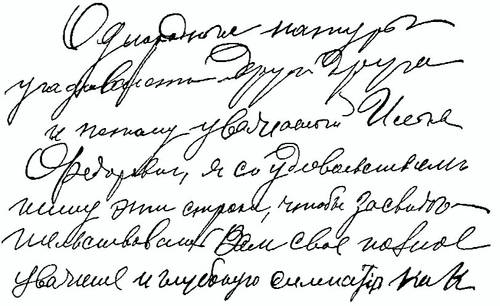 Однородные натуры
угадывают друг друга
и потому уважаемый
Федорович, я со удовольствием
пишу эти строки, чтобы засвидѣ-
тельствовать Вам свое полное
уважение и глубокую симпатiю как